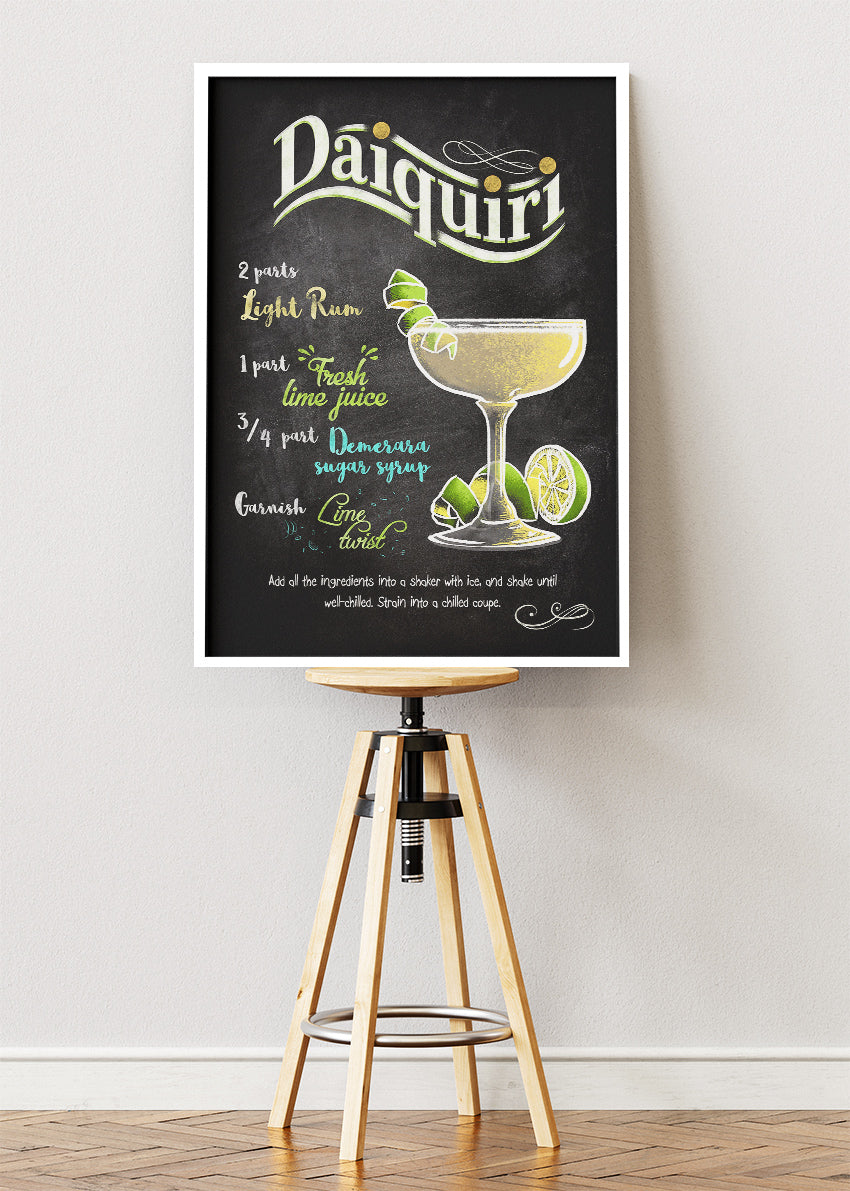 Daiquiri
2 parts
Light Rum
1 part
Fresh
lime juice
3/4 part
Demerara
sugar syrup
Garnish
Lime
twist
Add all the ingredients into a shaker with ice, and shake until
well-chilled. Strain into a chilled coupe.